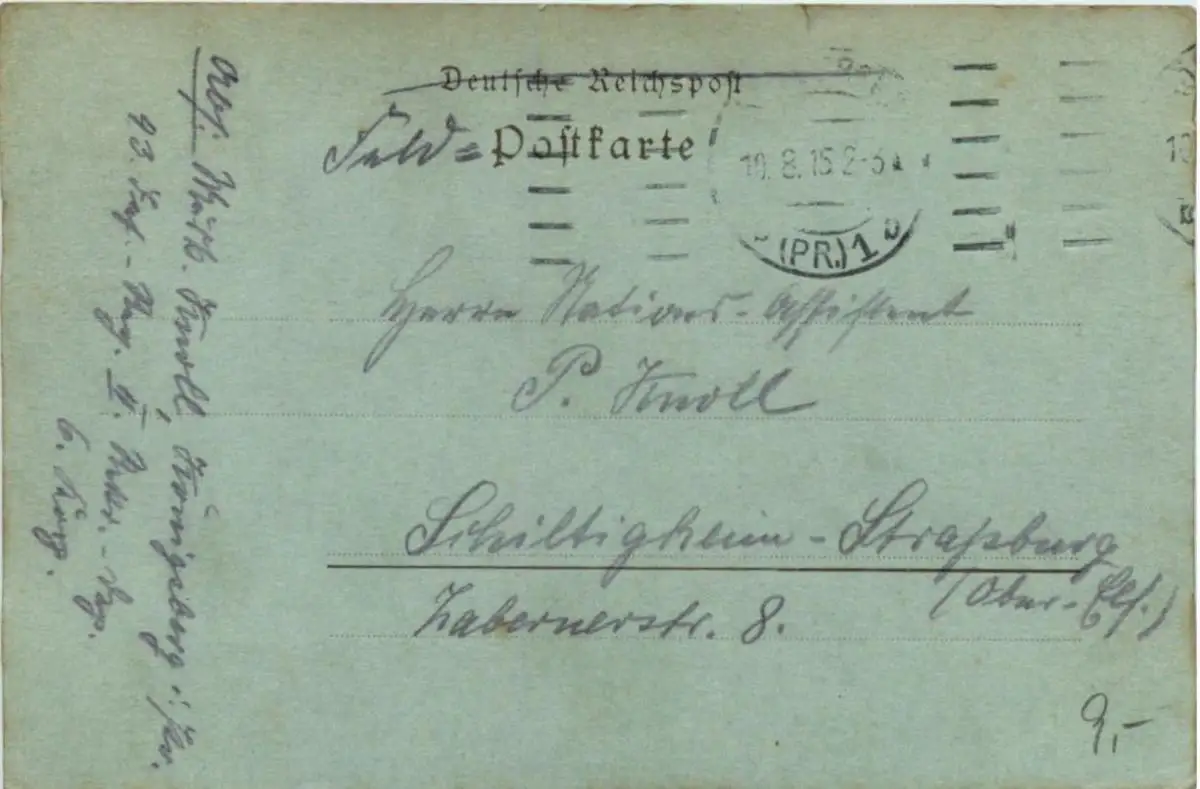 Deutsche Reichspost
Feld= Postkarte
10. 8. 15 2-3
(PR.) 1 b
Herrn Stations-Assistent
P. Knoll
Schiltigheim-Straßburg
(Ober-Els.)
Zabernerstr. 8.
9,-
Abs. Knoll, Königsberg i/Pr.
43. Inf.-Reg. II.
6. Korp.